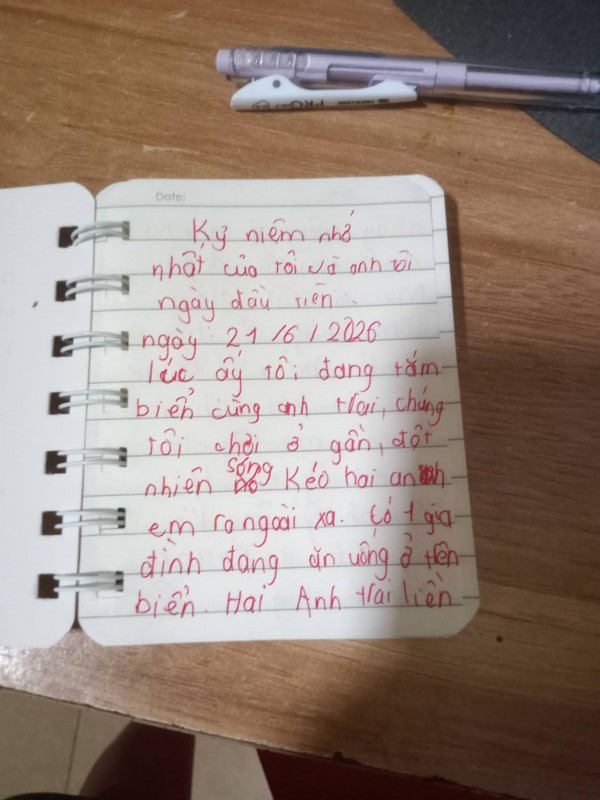 Date:
Kỷ niệm nhớ
nhất của tôi và anh tôi
ngày đầu tiên
ngày 21/6/2026
lúc ấy tôi đang tắm
biển cùng anh trai, chúng
tôi chơi ở gần, đột
nhiên sóng kéo hai anh
em ra ngoài xa. Có 1 gia
đình đang ăn uống ở trên
biển. Hai Anh trai liền